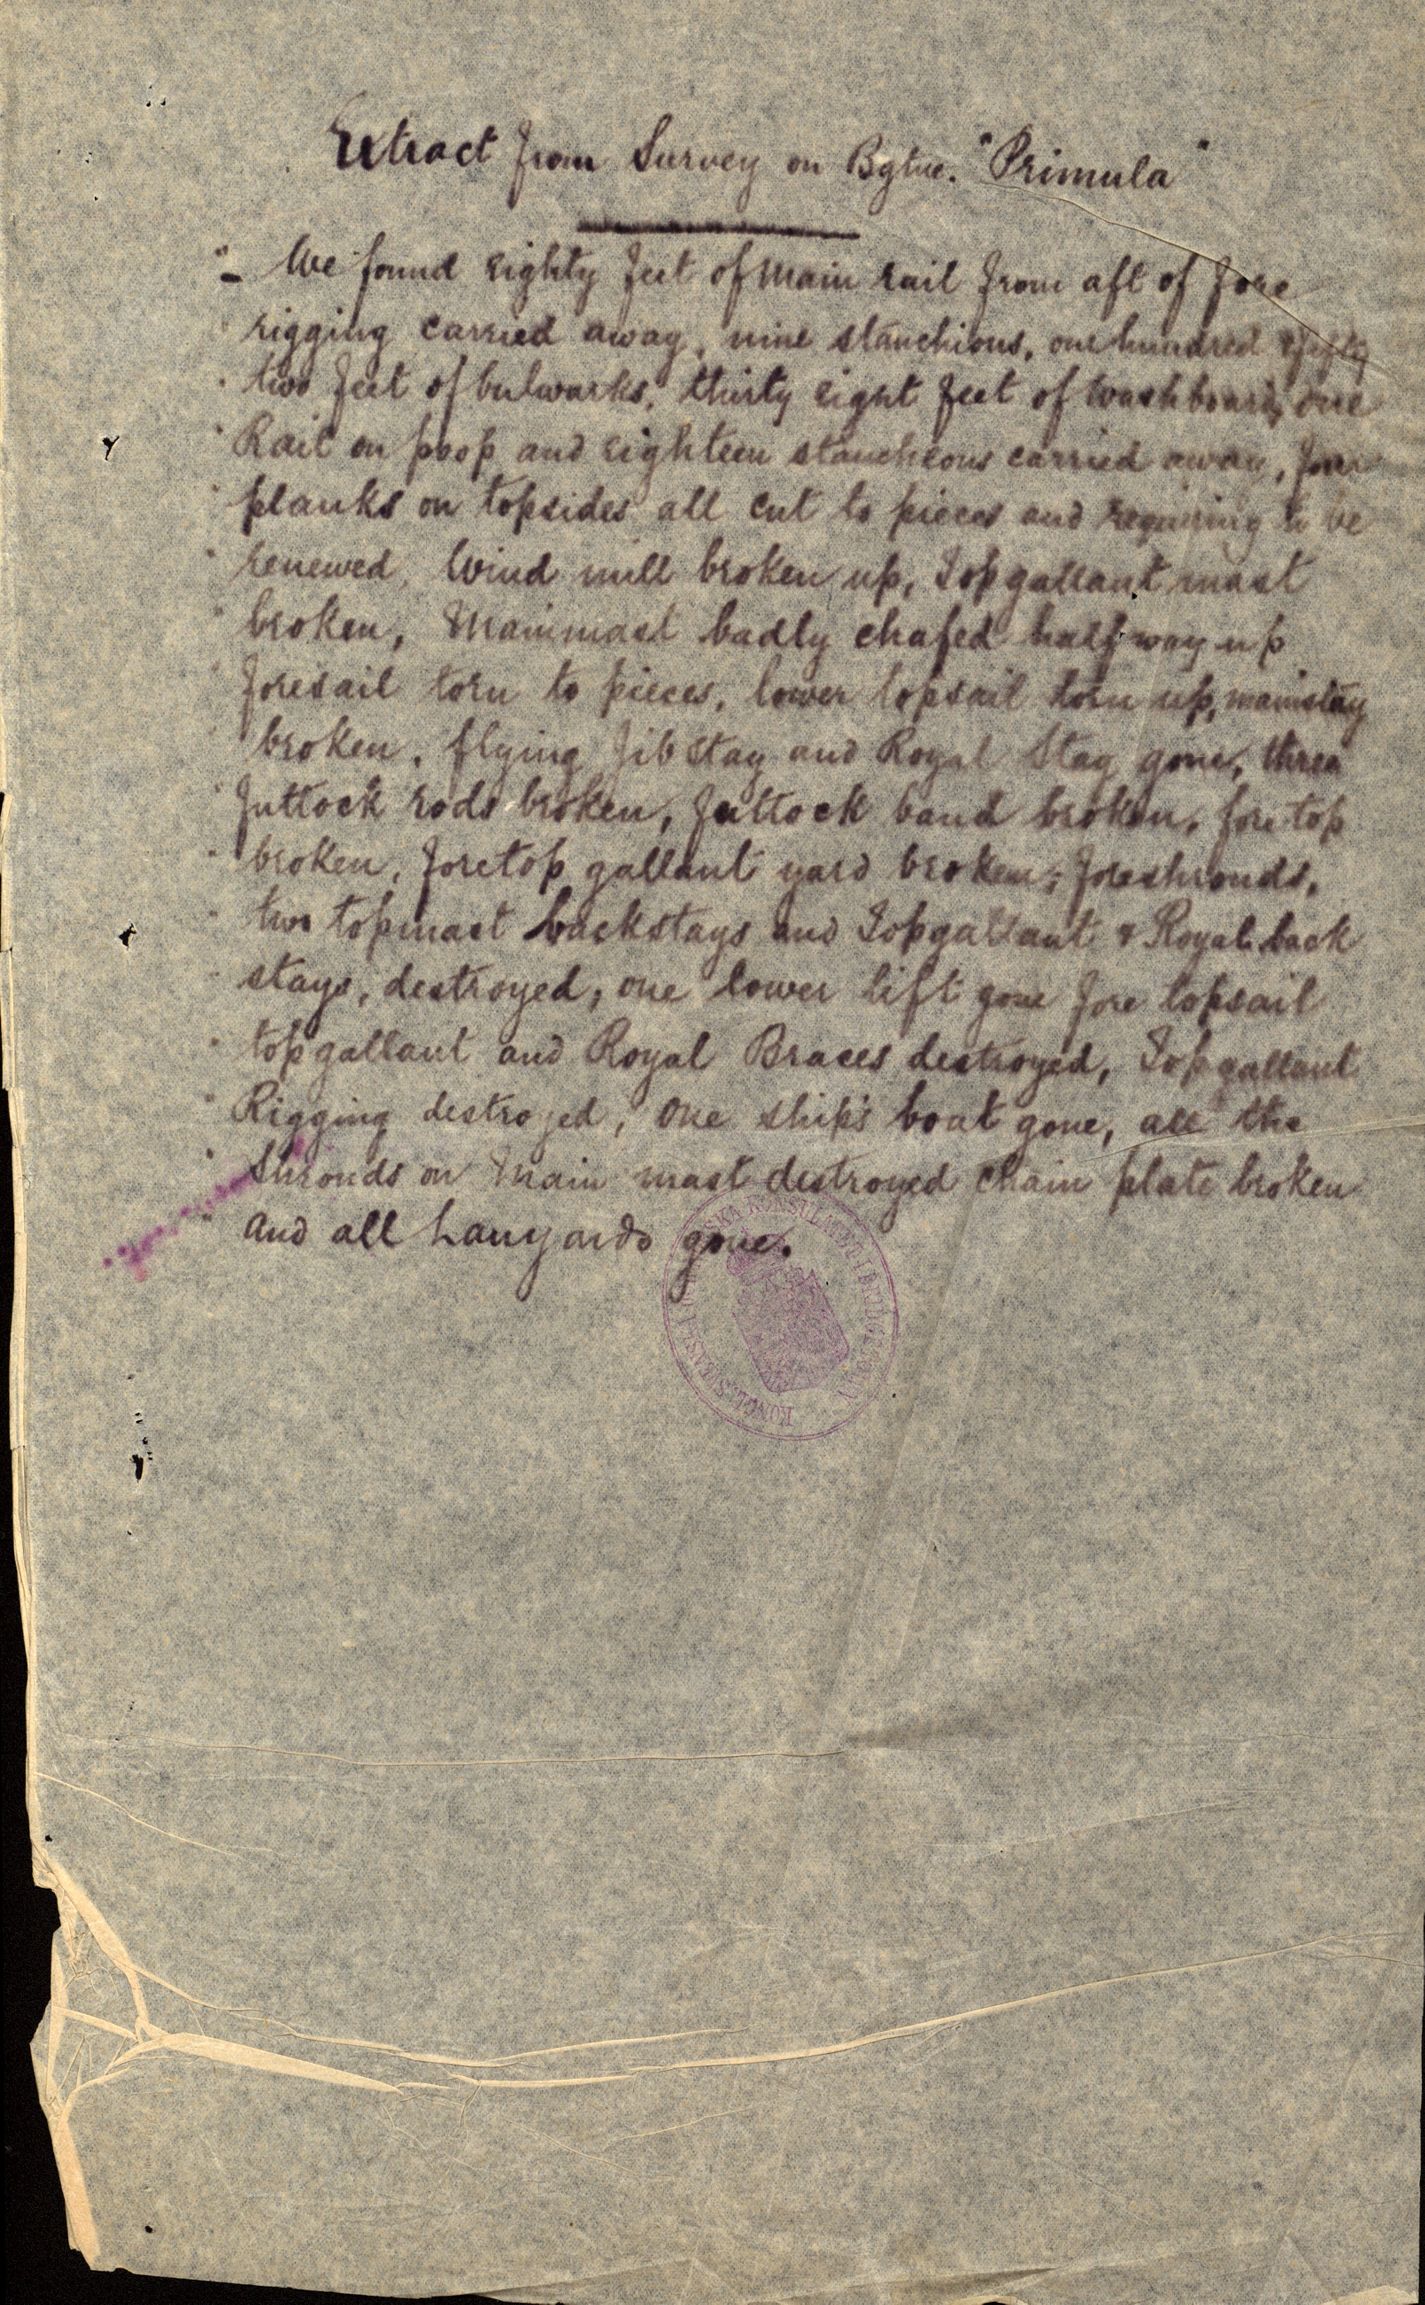 Extract from Survey on Bgtne. "Primula"
" We found eighty feet of main rail from aft of fore
" rigging carried away, nine stanchions, one hundred & fifty
" two feet of bulwarks, thirty eight feet of washboard, one
" Rail on poop and eighteen stancheons carried away, four
" planks on topsides all cut to pieces and requiring to be
" renewed, Wind mill broken up, Topgallant mast
" broken, Mainmast badly chafed half way up
" foresail torn to pieces, lower topsail torn up, mainstay
" broken, flying Jib Stay and Royal Stay gone, three
" futtock rods broken, futtock band broken, fore top
" broken, foretop gallant yard broken, foreshrouds,
" two topmast backstays and Topgallant & Royal back
" stays, destroyed, one lower lift gone fore topsail
" topgallant and Royal Braces destroyed, Topgallant
" Rigging destroyed, one ship's boat gone, all the
" Shrouds on Main mast destroyed chain plate broken
" and all Lanyards gone.
KONSULATET